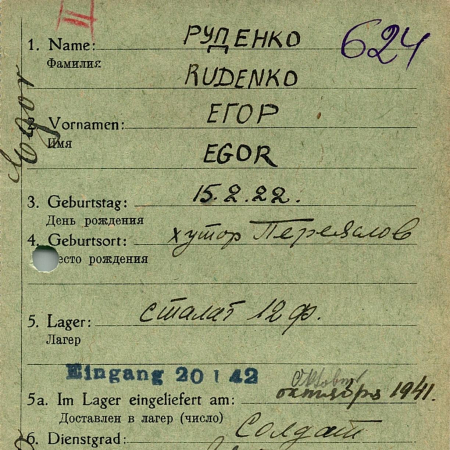 II
1. Name: РУДЕНКО 624
Фамилия
RUDENKO
Egor
2. Vornamen: ЕГОР
Имя
EGOR
3. Geburtstag: 15.2.22.
День рождения
4. Geburtsort: хутор Переяслов
есто рождения
5. Lager: сталаг 12 ф.
Лагер
Eingang 20 1 42
5a. Im Lager eingeliefert am: октября 1941.
Доставлен в лагер (число)
6. Dienstgrad: Солдат